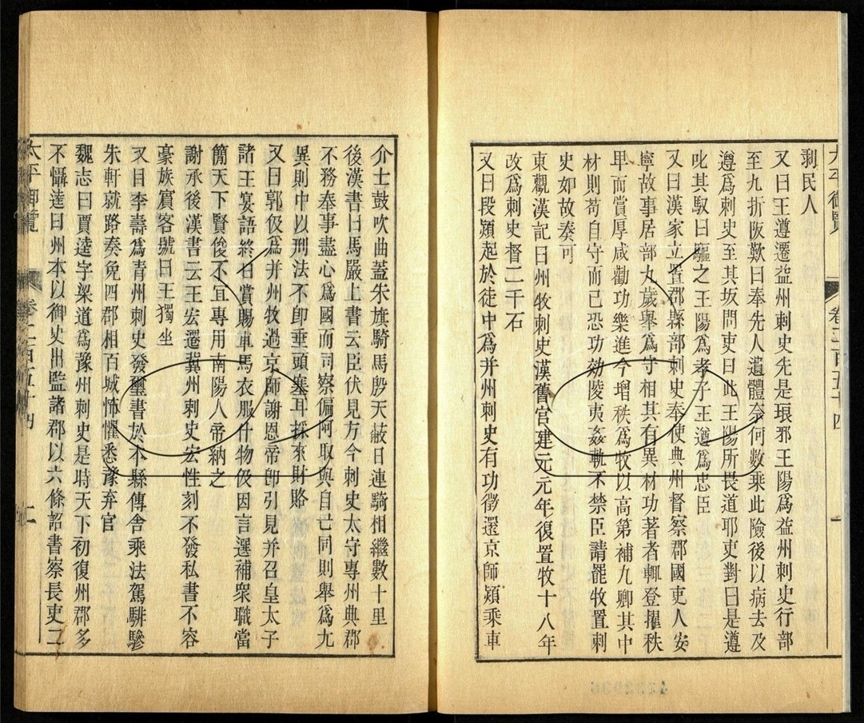 太平御覽
卷二百五十四
一
剥民人
又曰王遵遷益州刺史先是琅邪王陽爲益州刺史行部
至九折阪歎曰奉先人遺體奈何數乘此險後以病去及
遵爲刺史至其坂問吏曰此王陽所畏道耶吏對曰是遵
叱其馭曰驅之王陽爲孝子王遵爲忠臣
又曰漢家立置郡縣部刺史奉使典州督察郡國吏人安
寧故事居部九歲舉爲守相其有異材功著者輒登擢秩
卑而賞厚咸勸功樂進今增秩爲牧以高第補九卿其中
材則苟自守而已恐功効陵夷姦軌不禁臣請罷牧置刺
史如故奏可
東觀漢記曰州牧刺史漢舊官建元元年復置牧十八年
改爲刺史督二千石
又曰段熲起於徒中爲并州刺史有功徵還京師熲乘車
介士鼓吹曲蓋朱旗騎馬殷天蔽日連騎相繼數十里
後漢書曰馬嚴上書云臣伏見方今刺史太守專州典郡
不務奉事盡心爲國而司察偏阿取與自己同則舉爲九
異則中以刑法不卽垂頭塞耳採求財賂
又曰郭伋爲并州牧過京師謝恩帝卽引見并召皇太子
諸王宴語終日賞賜車馬衣服什物伋因言選補衆職當
簡天下賢俊不宜專用南陽人帝納之
謝承後漢書云王宏遷冀州刺史宏性刻不發私書不容
豪族賓客號曰王獨坐
又曰李壽爲青州刺史發璽書於本縣傳舍乘法駕騑驂
朱軒就路奏免四郡相百城怖懼悉豫弃官
魏志曰賈逵字梁道爲豫州刺史是時天下初復州郡多
不懾逵曰州本以御史出監諸郡以六條詔書察長吏二
太平御覽
卷二百五十四
二